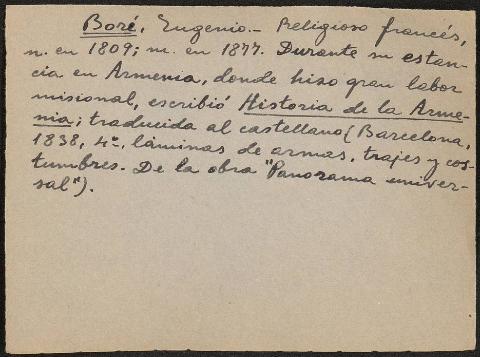 Boré, Eugenio.- Religioso francés,
n. en 1809; m. en 1877. Durante su estan-
cia en Armenia, donde hizo gran labor
misional, escribió Historia de la Arme-
nia; traducida al castellano (Barcelona,
1838, 4º, láminas de armas, trajes y cos-
tumbres. De la obra "Panorama univer-
sal").